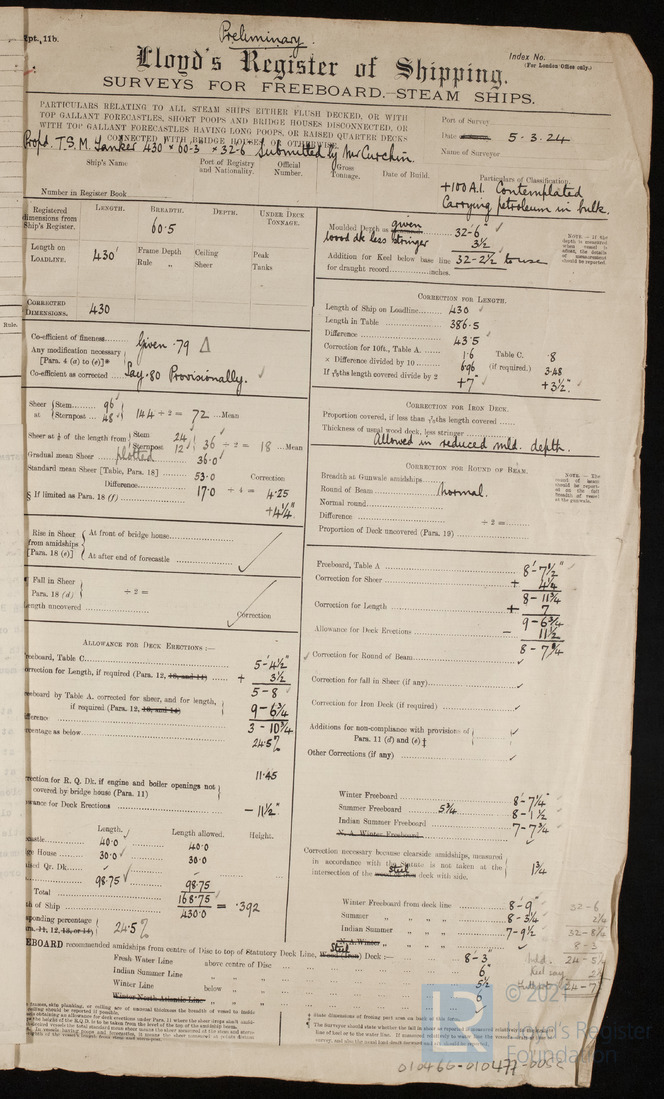 Rpt. 11b.
Preliminary.
Index No.
(For London Office only.)
Lloyd's Register of Shipping.
SURVEYS FOR FREEBOARD. STEAM SHIPS.
PARTICULARS RELATING TO ALL STEAM SHIPS EITHER FLUSH DECKED, OR WITH
TOP GALLANT FORECASTLES, SHORT POOPS AND BRIDGE HOUSES DISCONNECTED, OR
WITH TOP GALLANT FORECASTLES HAVING LONG POOPS, OR RAISED QUARTER DECKS
CONNECTED WITH BRIDGE HOUSES, OR OTHERWISE.
Port of Survey
Date 5-3-24
Name of Surveyor
Propd. T.S.M. Tanker 430 × 60-3 × 32-6 Submitted by Mr
Ship's Name
Port of Registry and Nationality.
Official Number.
Gross Tonnage.
Date of Build.
Particulars of Classification.
+100 A.1. Contemplated
Carrying petroleum in bulk.
Number in Register Book
Registered dimensions from Ship's Register.
LENGTH.
BREADTH.
DEPTH.
UNDER DECK TONNAGE.
60.5
Length on LOADLINE.
430'
Frame Depth
Rule "
Ceiling
Sheer
Peak
Tanks
CORRECTED DIMENSIONS.
430
Co-efficient of fineness given .79
Any modification necessary
[Para. 4 (a) to (e)]*
Co-efficient as corrected Say .80 Provisionally.
Sheer at Stem 96
Sternpost 48
144 ÷ 2 = 72 Mean
Sheer at ⅛ of the length from Stem 24
Sternpost 12
36 ÷ 2 = 18 Mean
Gradual mean Sheer plotted 36.0
Standard mean Sheer [Table, Para. 18] 53.0
Correction
Difference 17.0 ÷ 4 = 4.25
§ If limited as Para. 18 (f) +4¼"
Rise in Sheer from amidships [Para. 18 (e)]
At front of bridge house
At after end of forecastle
Fall in Sheer
Para. 18 (d) ÷ 2 =
Length uncovered
Correction
ALLOWANCE FOR DECK ERECTIONS :—
Freeboard, Table C. 5-4½"
Correction for Length, if required (Para. 12, 10, and 14) + 3½
5-8
Freeboard by Table A. corrected for sheer, and for length,
if required (Para. 12, 10, and 14) 9-6¾
Difference 3-10¾
Percentage as below 24.5%
11.45
Correction for R. Q. Dk. if engine and boiler openings not
covered by bridge (Para. 11)
Allowance for Deck Erections −11½"
Length.
Length allowed.
Height.
40.0 40.0
Bridge House 30.0 30.0
Raised Qr. Dk.
98.75 98.75
Total 168.75
Length of Ship 430.0 = .392
Corresponding percentage
24.5%
Moulded Depth as given 32-6"
wood dk less stringer 3½
Addition for Keel below base line for draught record inches.
32-2½ to use
CORRECTION FOR LENGTH.
Length of Ship on Loadline 430
Length in Table 386.5
Difference 43.5
Correction for 10ft., Table A. 1.6 Table C. .8
× Difference divided by 10 6.96 (if required.) 3.48
If 6/10ths length covered divide by 2 +7" +3½"
CORRECTION FOR IRON DECK.
Proportion covered, if less than 7/10ths length covered
Thickness of usual wood deck, less stringer
Allowed in reduced mld. depth.
CORRECTION FOR ROUND OF BEAM.
Breadth at Gunwale amidships
Round of Beam normal.
Normal round
Difference ÷ 2 =
Proportion of Deck uncovered (Para. 19)
Freeboard, Table A 8'-7½"
Correction for Sheer + 4¼
8-11¾
Correction for Length + 7
9-6¾
Allowance for Deck Erections − 11½
8-7¼
Correction for Round of Beam
Correction for fall in Sheer (if any)
Correction for Iron Deck (if required)
Additions for non-compliance with provisions of
Para. 11 (d) and (e) ‡
Other Corrections (if any)
Winter Freeboard 8'-7¼"
Summer Freeboard 5¾ 8-1½
Indian Summer Freeboard 7-7¾
N. A. Winter Freeboard
Correction necessary because clearside amidships, measured
in accordance with the Statute is not taken at the
intersection of the steel deck with side. 1¾
Winter Freeboard from deck line 8-9"
Summer " " " " 8-3¼
Indian Summer " " 7-9½
N.A. Winter "
FREEBOARD recommended amidships from centre of Disc to top of Statutory Deck Line, Steel Wood (Iron) Deck :— 8-3"
Fresh Water Line above centre of Disc 6"
Indian Summer Line " " 5½
Winter Line below " " 6
Winter North Atlantic Line " "
32-6
2¼
32-8¼
8-3
24-5¼
Keel say
24-7
© 2021
LR
Lloyd's Register
Foundation
010466-010477-0058